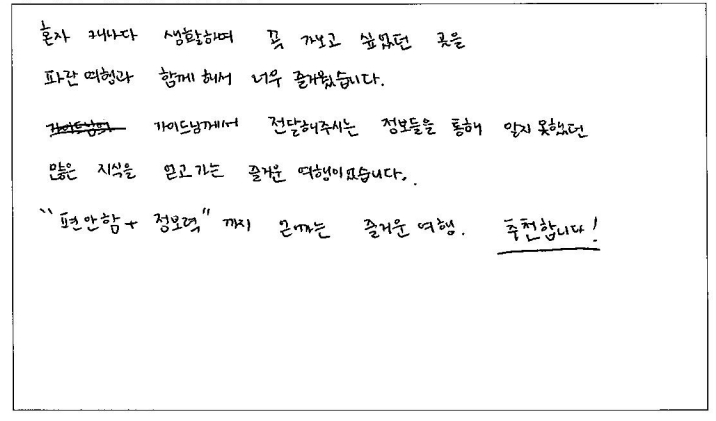 혼자 캐나다 생활하며 꼭 가보고 싶었던 곳을
파란여행과 함께 해서 너무 즐거웠습니다.
가이드님께서 전달해주시는 정보들을 통해 알지 못했던
많은 지식을 얻고가는 즐거운 여행이었습니다.
"편안함 + 정보력" 까지 얻가는 즐거운 여행. 추천합니다!